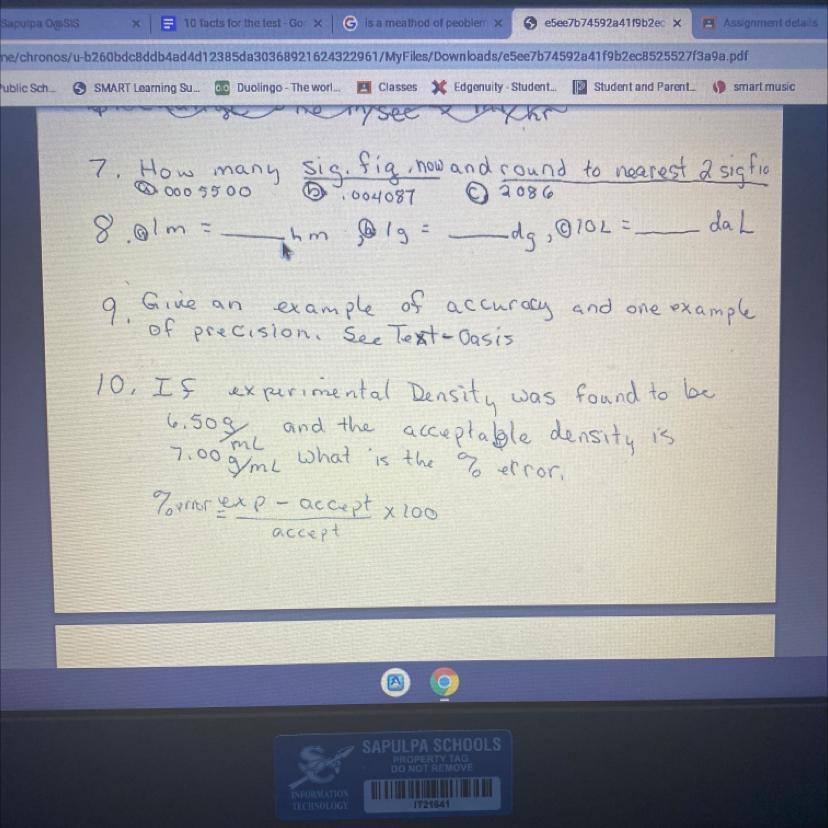 Sapulpa O@SIS × 10 facts for the test - Go × is a meathod of peoblem × e5ee7b74592a41f9b2ec × Assignment details
ne/chronos/u-b260bdc8ddb4ad4d12385da30368921624322961/MyFiles/Downloads/e5ee7b74592a41f9b2ec8525527f3a9a.pdf
Public Sch... SMART Learning Su... Duolingo - The worl... Classes Edgenuity - Student... Student and Parent... smart music
7. How many sig. fig. now and round to nearest 2 sig fig
ⓐ 0005500 ⓑ .004087 ⓒ 2086
8. ⓐ 1m = ____ hm , ⓑ 1g = ____ dg, ⓒ 10L = ____ daL
9. Give an example of accuracy and one example
of precision. See Text-Oasis
10. If experimental Density was found to be
6.50 g/mL and the acceptable density is
7.00 g/mL what is the % error.
% error = exp - accept / accept × 100
SAPULPA SCHOOLS
PROPERTY TAG
DO NOT REMOVE
INFORMATION
TECHNOLOGY
IT21641